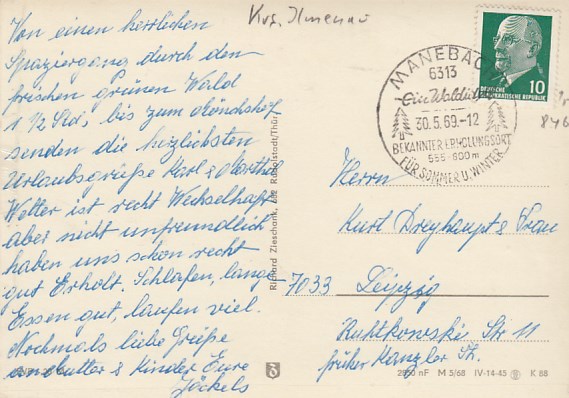 Krs. Ilmenau
Von einen herrlichen
Spaziergang durch den
frischen grünen Wald
1 1/2 Std, bis zum Mönchshof
senden die herzlichsten
Urlaubsgrüße Karl & Martha
Wetter ist recht Wechselhaft
aber nicht unfreundlich
haben uns schon recht
gut Erholt. Schlafen, lange
Essen gut, laufen viel.
Nochmals liebe Grüße
an Mutter & Kinder Eure
Jöckels
Richard Zieschank, 682 Rudolstadt/Thür.
MANEBACH
6313
Ein Waldidyll
30.5.69.-12
BEKANNTER ERHOLUNGSORT
555-800 m
FÜR SOMMER U. WINTER
DEUTSCHE
DEMOKRATISCHE REPUBLIK
10
846
Herrn
Kurt Dreyhaupt & Frau
7033 Leipzig
Ruhtkowski Str 11
früher Kanzler St.
2950 nF M 5/68 IV-14-45 K 88